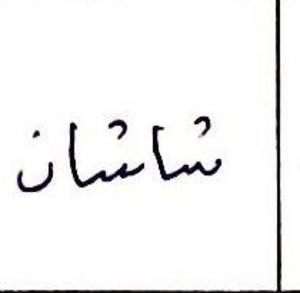 شاشان